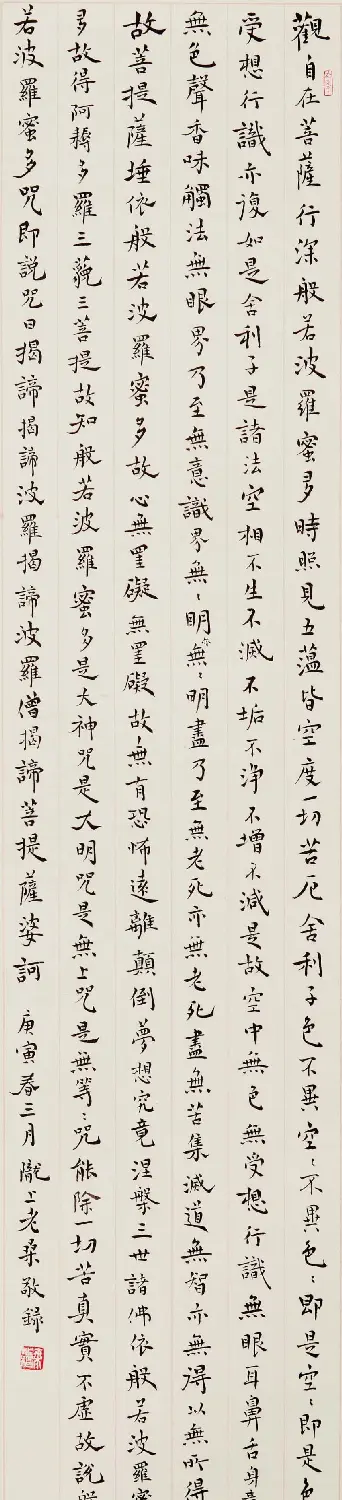 觀自在菩薩行深般若波羅蜜多時照見五蘊皆空度一切苦厄舍利子色不異空〻不異色〻即是空〻即是色
受想行識亦復如是舍利子是諸法空相不生不滅不垢不淨不增不減是故空中無色無受想行識無眼耳鼻舌身意
無色聲香味觸法無眼界乃至無意識界無〻明亦無〻明盡乃至無老死亦無老死盡無苦集滅道無智亦無得以無所得
故菩提薩埵依般若波羅蜜多故心無罣礙無罣礙故無有恐怖遠離顛倒夢想究竟涅槃三世諸佛依般若波羅蜜
多故得阿耨多羅三藐三菩提故知般若波羅蜜多是大神咒是大明咒是無上咒是無等〻咒能除一切苦真實不虛故說般
若波羅蜜多咒即說咒曰揭諦揭諦波羅揭諦波羅僧揭諦菩提薩婆訶 庚寅春三月隴上老桑敬錄